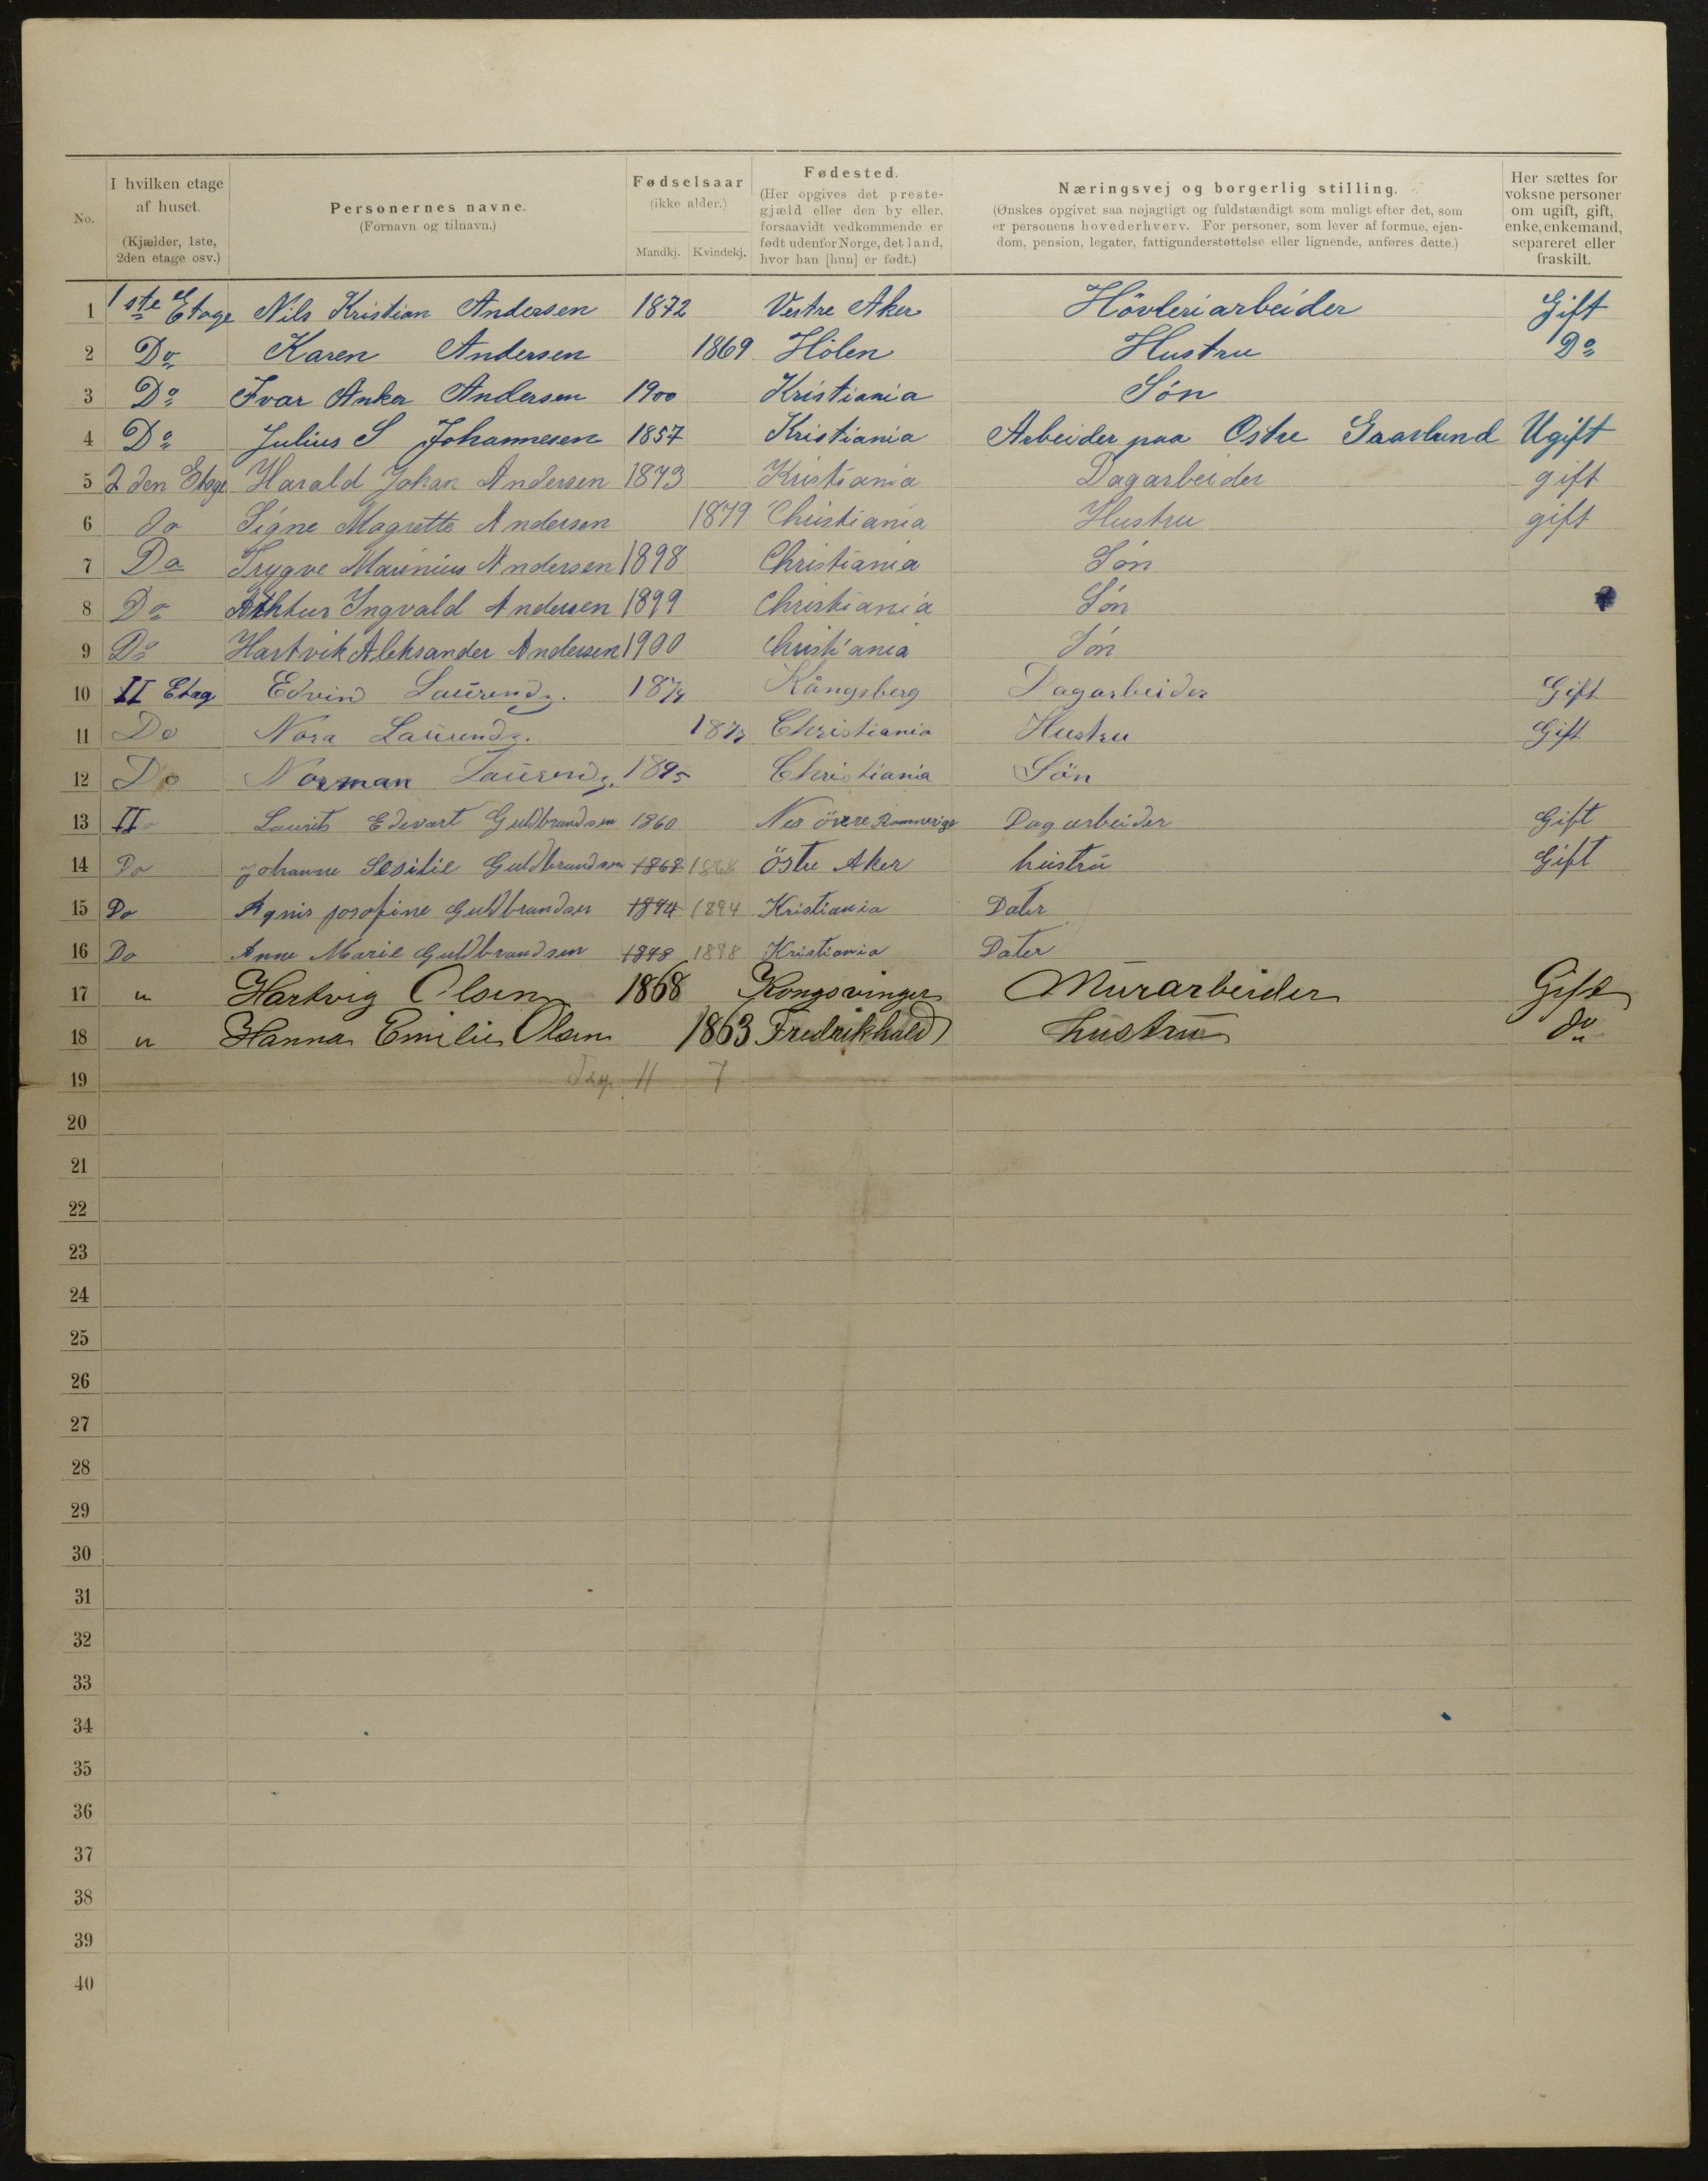 No. | I hvilken etage af huset. (Kjælder, 1ste, 2den etage osv.) | Personernes navne. (Fornavn og tilnavn.) | Fødselsaar (ikke alder.) Mandkj. | Kvindekj. | Fødested. (Her opgives det prestegjæld eller den by eller, forsaavidt vedkommende er født udenfor Norge, det land, hvor han [hun] er født.) | Næringsvej og borgerlig stilling. (Ønskes opgivet saa nøjagtigt og fuldstændigt som muligt efter det, som er personens hovederhverv. For personer, som lever af formue, ejendom, pension, legater, fattigunderstøttelse eller lignende, anføres dette.) | Her sættes for voksne personer om ugift, gift, enke, enkemand, separeret eller fraskilt.
1 1ste Etage Nils Kristian Andersen 1872 Vestre Aker Hövleriarbeider Gift
2 Do Karen Andersen 1869 Hölen Hustru Do
3 Do Ivar Anker Andersen 1900 Kristiania Søn
4 Do Julius S Johannesen 1857 Kristiania Arbeider paa Ostre Gaarlund Ugift
5 2den Etage Harald Johan Andersen 1873 Kristiania Dagarbeider gift
6 do Signe Magrette Andersen 1879 Christiania Hustru gift
7 Do Trygve Marinius Andersen 1898 Christiania Søn
8 Do Arthur Ingvald Andersen 1899 Christiania Søn
9 Do Hartvik Aleksander Andersen 1900 Christiania Søn
10 II Etag Edvin Laurendz. 1874 Kångsberg Dagarbeider Gift
11 Do Nora Laurendz. 1873 Christiania Hustru Gift
12 Do Norman Laurendz. 1895 Christiania Sön
13 II Laurits Edevart Guldbrandsen 1860 Nes övere Rommerige Dagarbeider Gift
14 Do Johanne Sesilie Guldbrandsen 1868 1868 Östre Aker hustru Gift
15 Do Agnis josofine Guldbrandsen 1894 1894 Kristiania Dater
16 Do Anne Marie Guldbrandsen 1898 1898 Kristiania Dater
17 " Hartvig Olsen 1868 Kongsvinger Murarbeider Gift
18 " Hanna Emilie Olsen 1863 Fredrikhald hustru do
19 11 7
20
21
22
23
24
25
26
27
28
29
30
31
32
33
34
35
36
37
38
39
40